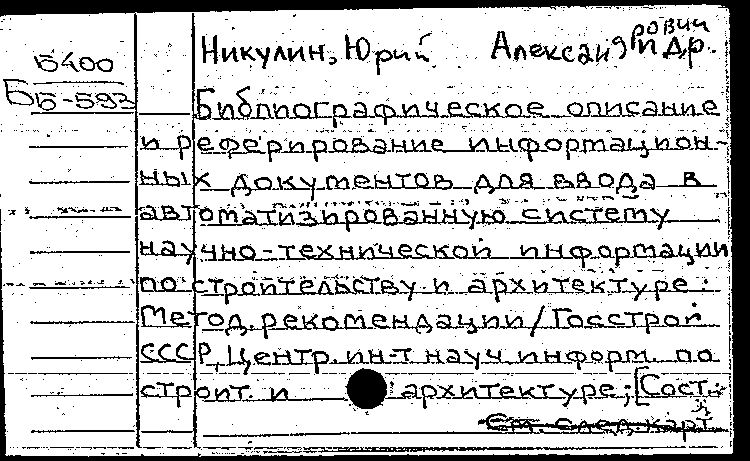 Никулин, Юрий Александрович и др.
Б400
ББ-593
Библиографическое описание
и реферирование информацион-
ных документов для ввода в
автоматизированную систему
научно-технической информации
по строительству и архитектуре:
Метод. рекомендации/Госстрой
СССР, Центр. ин-т науч. информ. по
строит. и архитектуре; [Сост.:
См. след. карт.